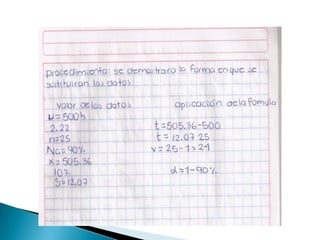 procedimiento: se demostrara la forma en que se
sustituiran los datos
valor de los datos aplicación de la fomula
μ=500h t=505.36-500
2.22 t= 12.07 25
n=25 v=25-1=24
Nc=90% α=1-90%
x=505.36
10%
S=12.07